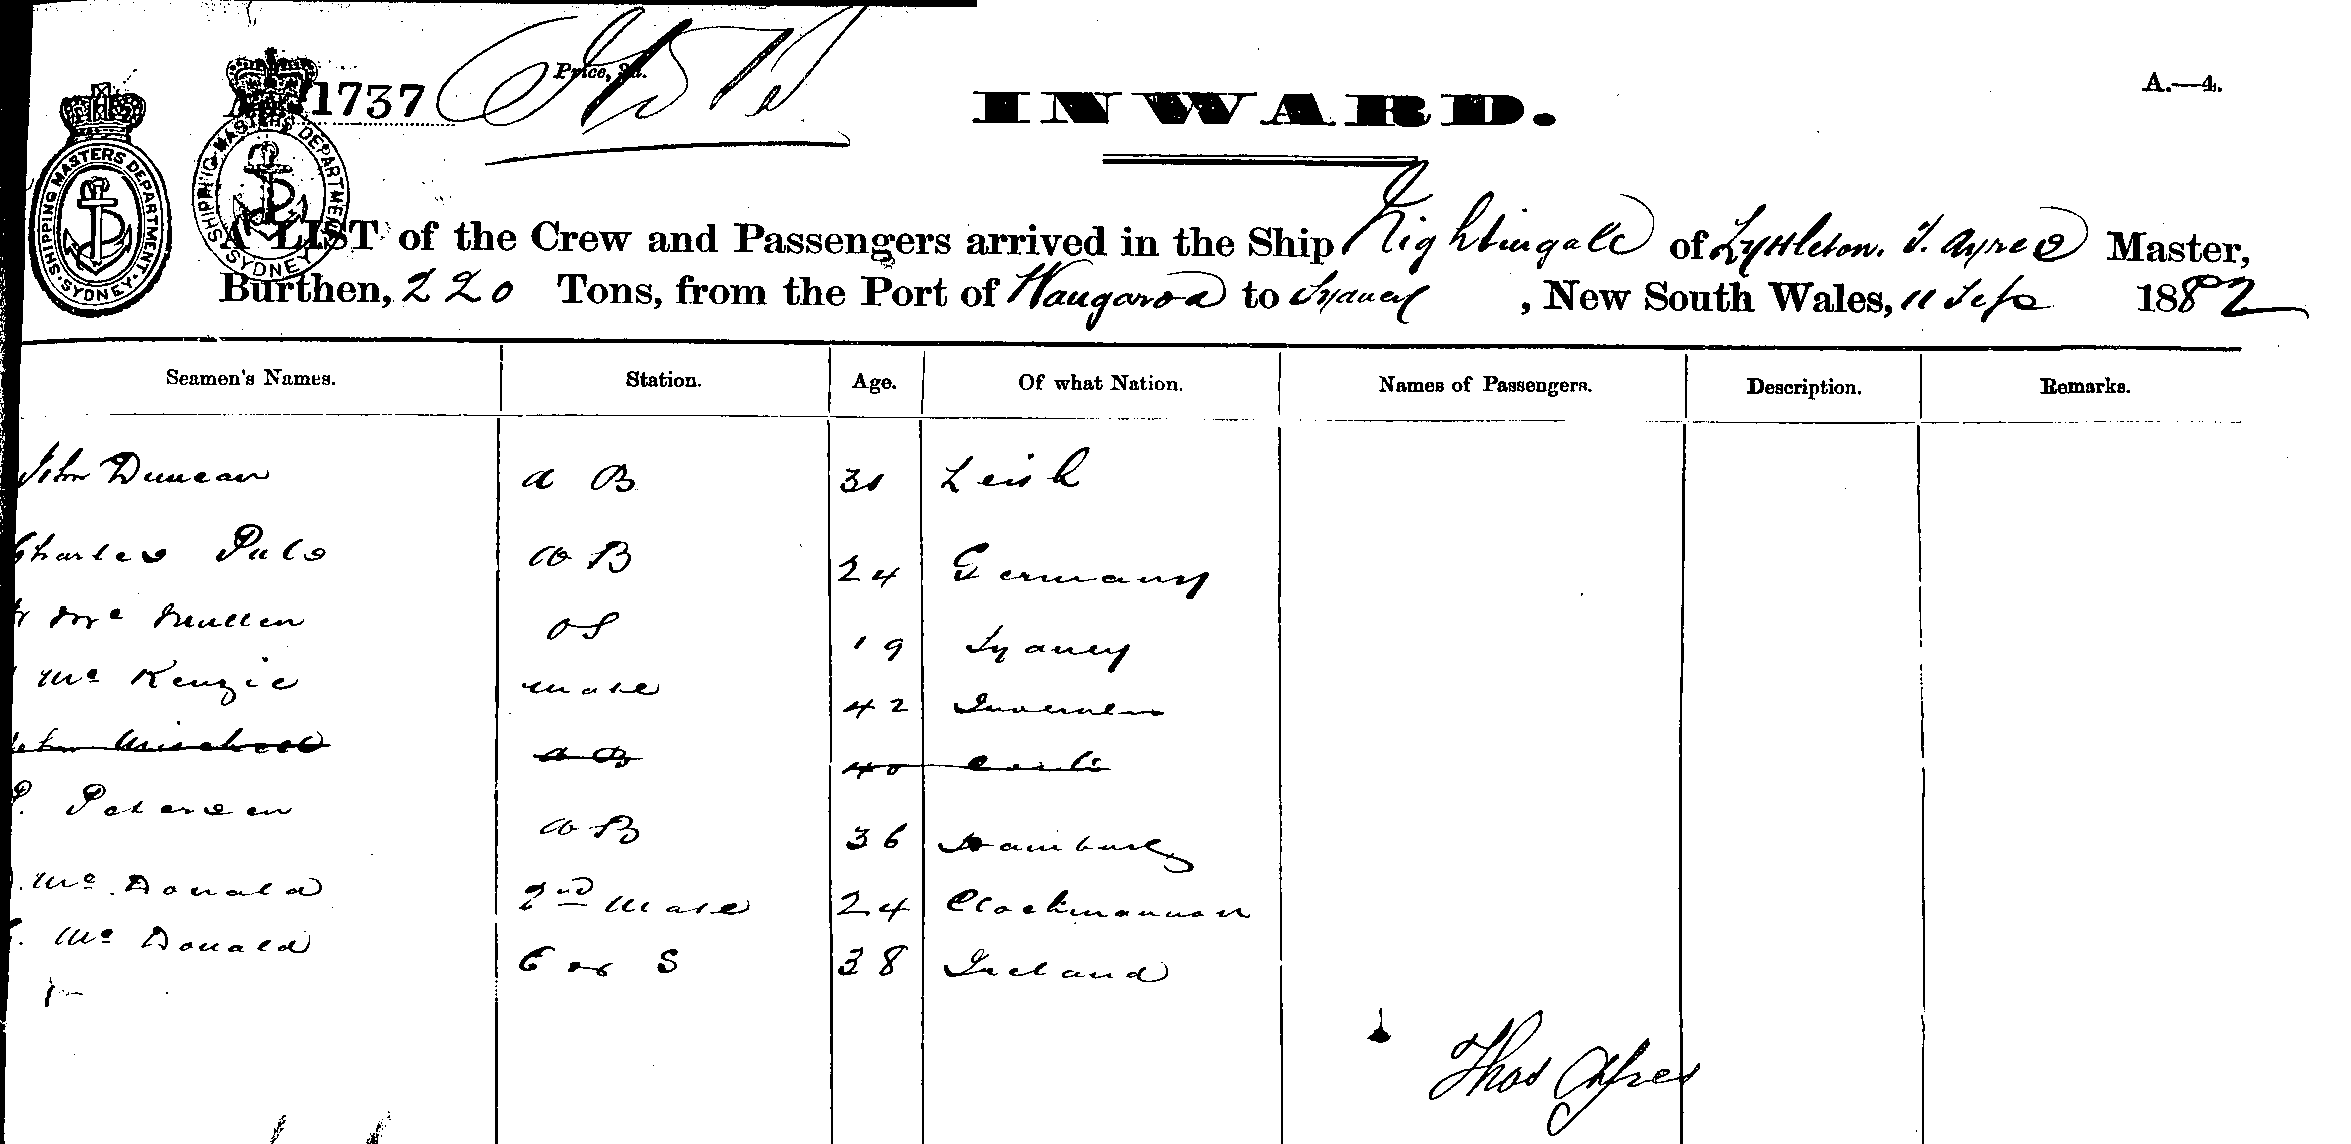 Price, 3d.
1737
INWARD.
A.—4.
SHIPPING MASTERS DEPARTMENT. SYDNEY.
SHIPPING MASTERS DEPARTMENT SYDNEY
A LIST of the Crew and Passengers arrived in the Ship Nightingale of Lyttleton. T. Ayres Master,
Burthen, 220 Tons, from the Port of Wangaroa to Sydney, New South Wales, 11 Sep 1882
Seamen's Names. Station. Age. Of what Nation. Names of Passengers. Description. Remarks.
John Duncan a B 31 Leith
Charles Puls a B 24 Germany
Mc Mullen O S 19 Sydney
Mc Kenzie mate 42 Inverness
John a B 40
P. Petersen a B 36 Hamburg
Mc Donald 2nd Mate 24 Clackmannan
Mc Donald C or S 38 Ireland
Thos Ayres